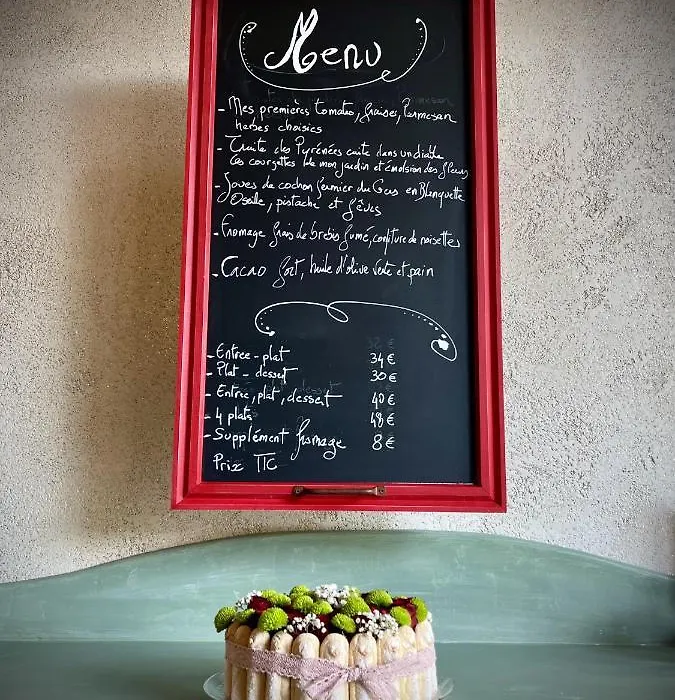 Menu
- Mes premières tomates, fraises, Parmesan
herbes choisies
- Truite des Pyrénées cuite dans un diable
les courgettes de mon jardin et émulsion des fleurs
- Joues de cochon fermier du Gers en Blanquette
Oseille, pistache et fèves
- Fromage frais de brebis fumé, confiture de noisettes
- Cacao fort, huile d'olive verte et pain
- Entrée - plat 34 €
- Plat - dessert 30 €
- Entrée, plat, dessert 40 €
- 4 plats 48 €
- Supplément fromage 8 €
Prix TTC